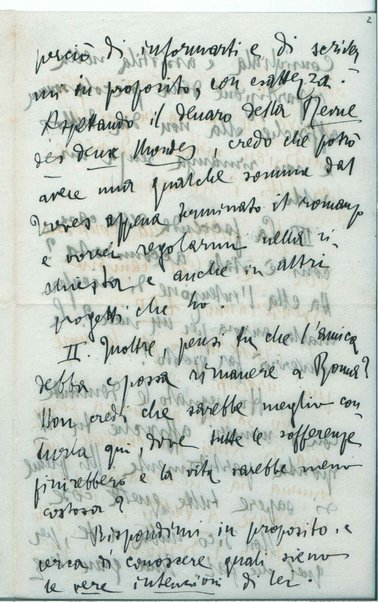 2
perciò di informarti e di scriver
mi in proposito, con esattezza.
Aspettando il denaro della Revue
des deux Mondes, credo che potrò
avere una qualche somma dal
Treves appena terminato il romanzo
e vorrei regolarmi nella ri
chiesta, e anche in altri
progetti che ho.
II. Inoltre, pensi tu che l'amica
debba e possa rimanere a Roma?
Non credi che sarebbe meglio con
durla qui, dove tutte le sofferenze
finirebbero e la vita sarebbe meno
costosa?
Rispondimi in proposito, e
cerca di conoscere quali sieno
le vere intenzioni di lei.